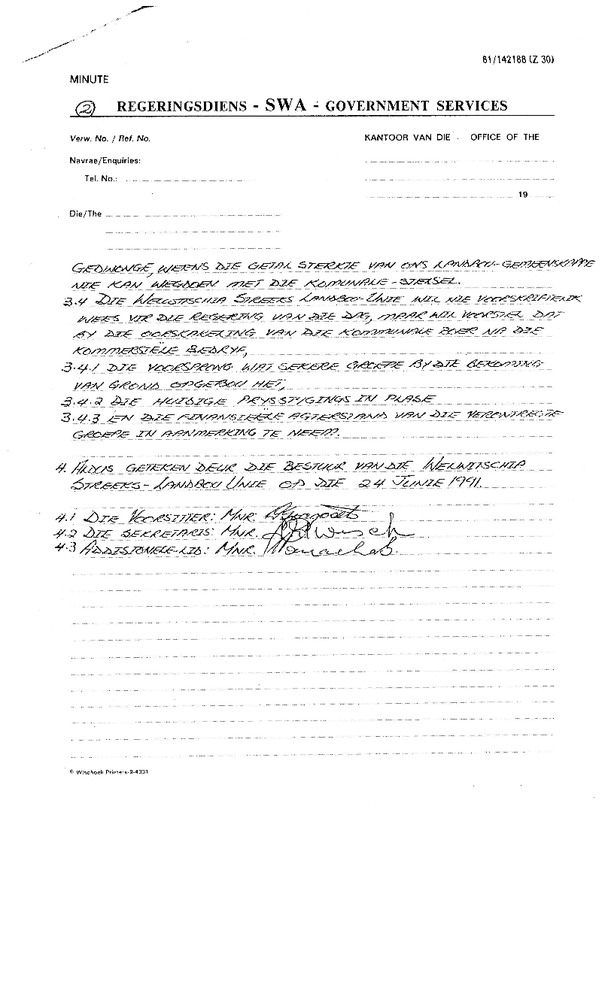 81/142188 (Z 30)
MINUTE
② REGERINGSDIENS - SWA - GOVERNMENT SERVICES
Verw. No. / Ref. No.
KANTOOR VAN DIE OFFICE OF THE
Navrae/Enquiries:
Tel. No.:
19
Die/The
GEDWONGE, WEENS DIE GETAL STERKTE VAN ONS LANDBOU-GEMEENSKAPPE
NIE KAN WEGDOEN MET DIE KOMUNALE-STELSEL.
3.4 DIE WELWITSCHIA STREEKS LANDBOU-UNIE WIL NIE VOORSKRIFTELIK
WEES VIR DIE REGERING VAN DIE DAG, MAAR WIL VOORSTEL DAT
BY DIE OORSKAKELING VAN DIE KOMMUNALE BOER NA DIE
KOMMERSIËLE BEDRYF,
3.4.1 DIE VOORSPRONG WAT SEKERE GROEPE BY DIE BEKOMING
VAN GROND OPGEBOU HET,
3.4.2 DIE HUIDIGE PRYSSTYGINGS IN PLASE
3.4.3 EN DIE FINANSIEELE AGTERSTAND VAN DIE VERONTREGTE
GROEPE IN AANMERKING TE NEEM.
4. ALDUS GETEKEN DEUR DIE BESTUUR VAN DIE WELWITSCHIA
STREEKS-LANDBOU UNIE OP DIE 24 JUNIE 1991.
4.1 DIE VOORSITTER: MNR.
4.2 DIE SEKRETARIS: MNR.
4.3 ADDISIONELE-LID: MNR.
© Windhoek Printers-8-4331